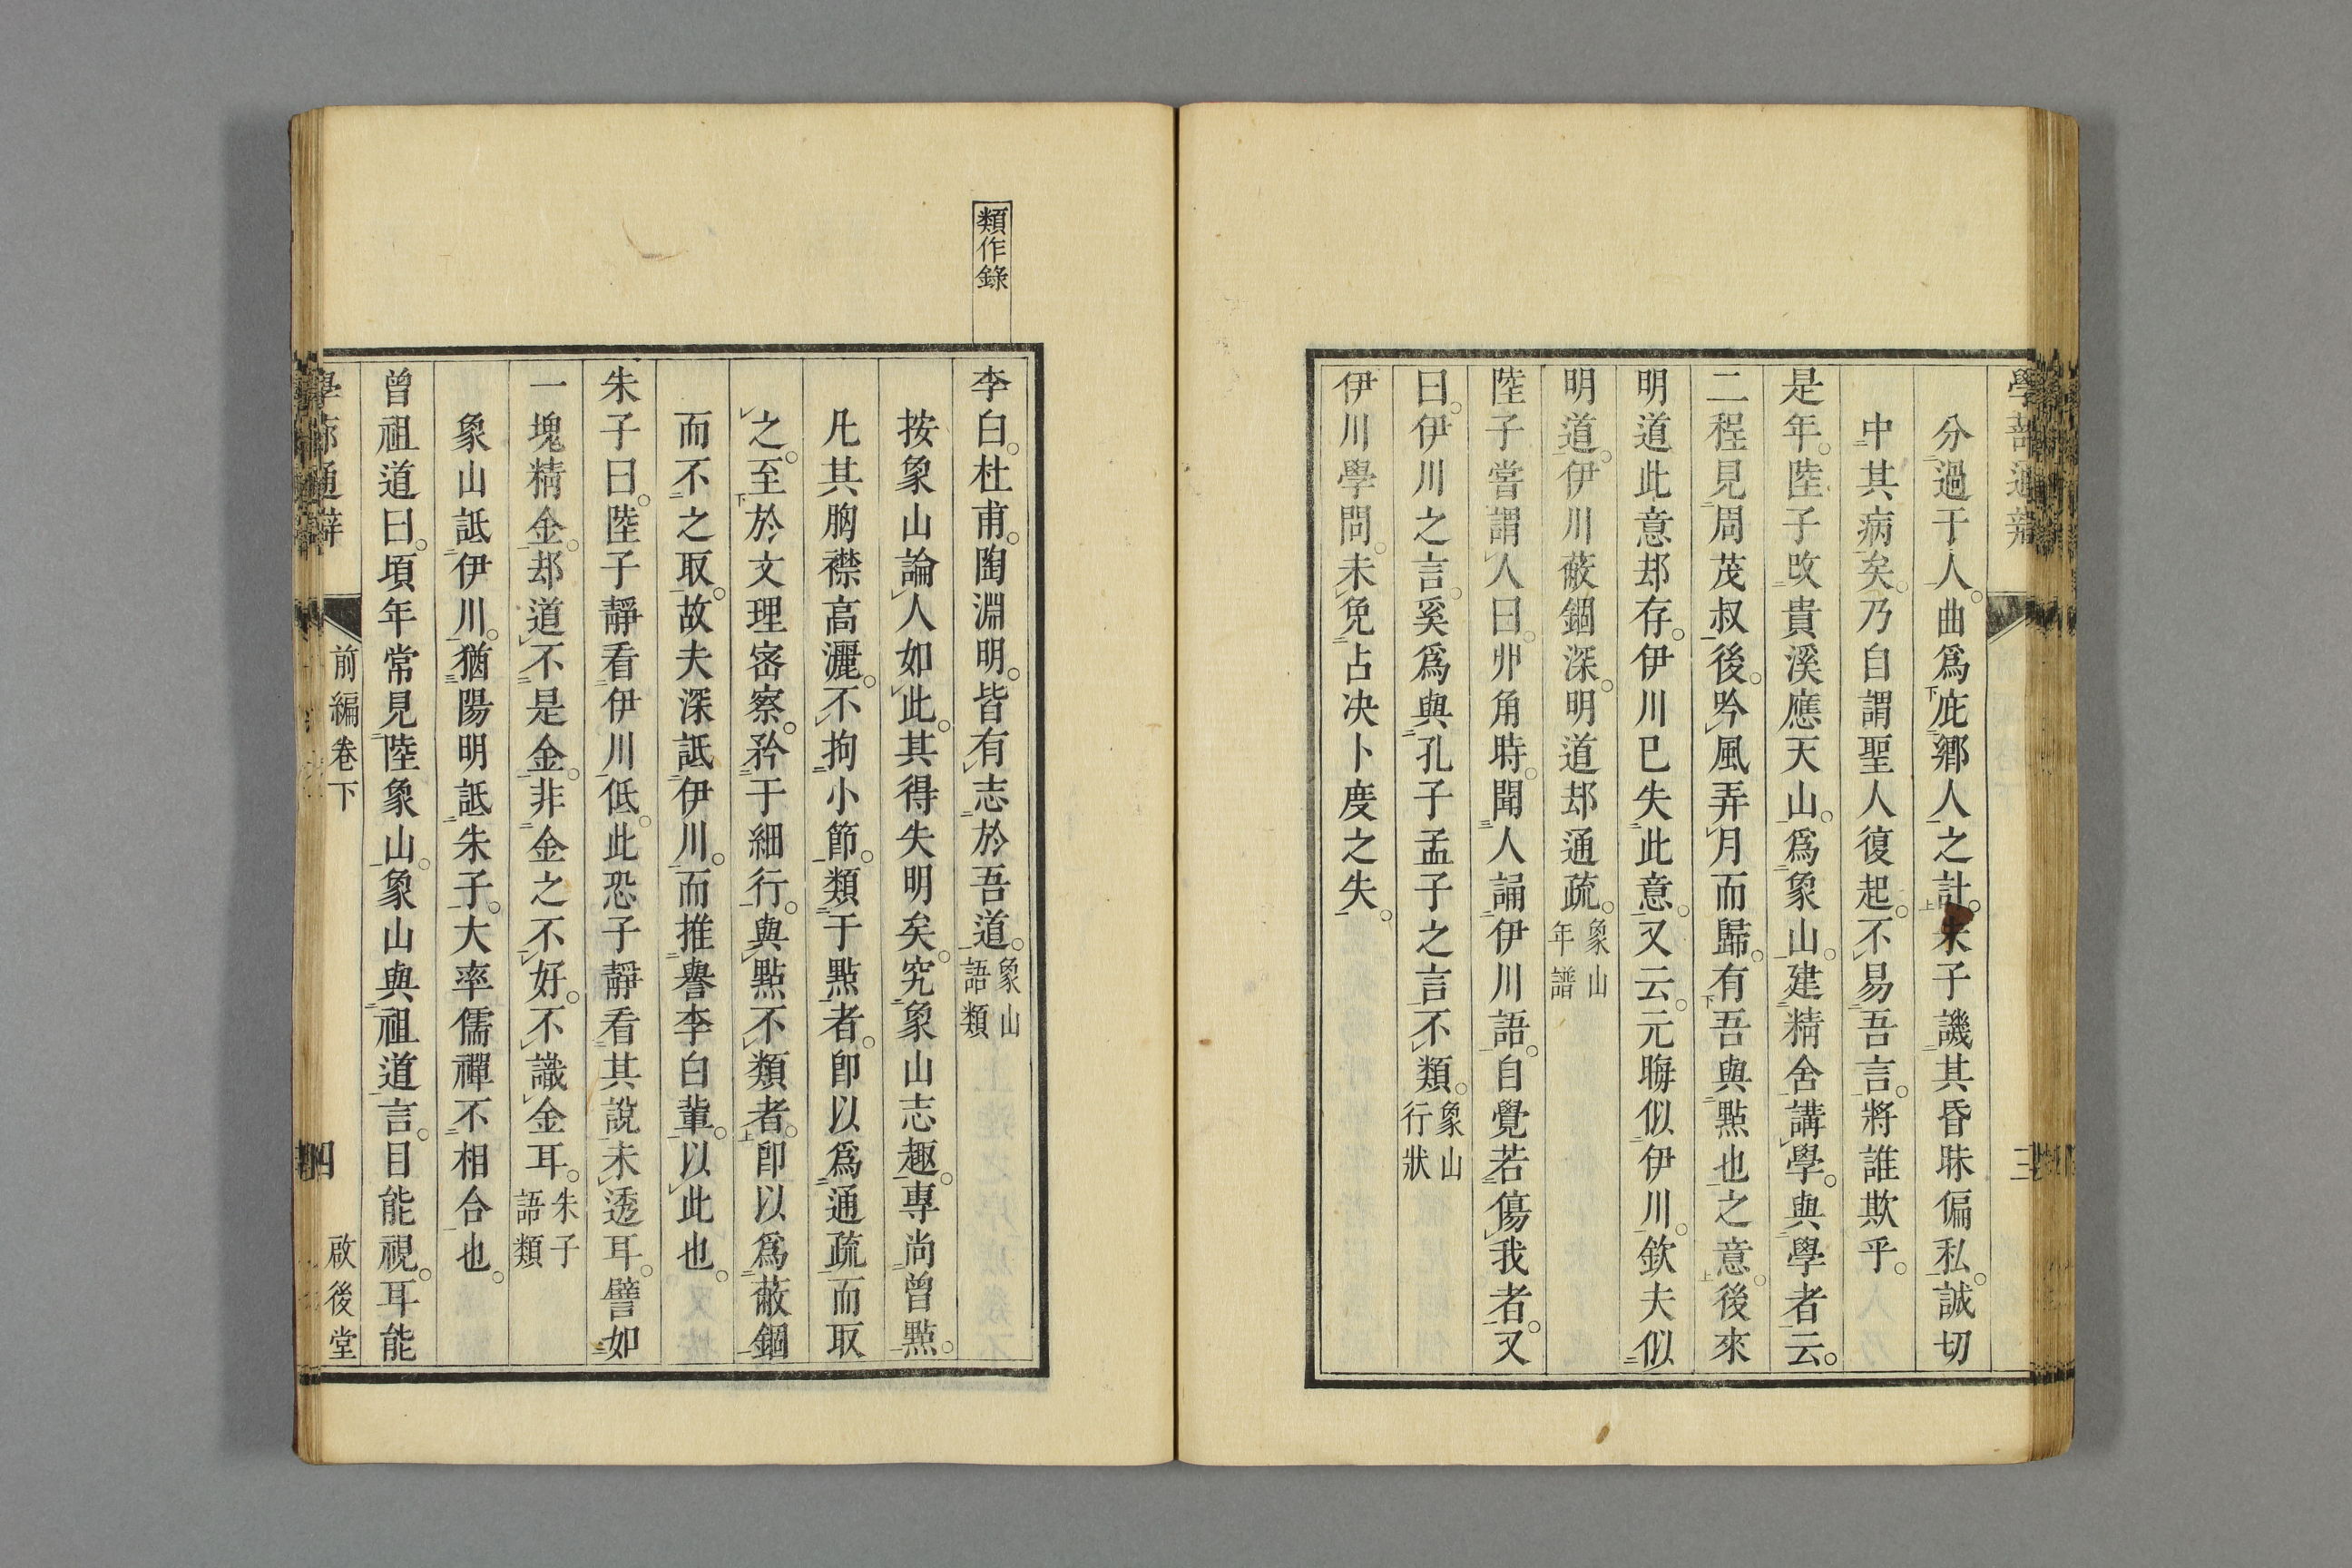 分過于人。曲爲庇鄉人之計。朱子譏其昏昧偏私。誠切
中其病矣。乃自謂聖人復起。不易吾言。將誰欺乎。
是年。陸子改貴溪應天山。爲象山。建精舍講學。與學者云。
二程見周茂叔後。吟風弄月而歸。有吾與點也之意。後來
明道此意却存。伊川已失此意。又云。元晦似伊川。欽夫似
明道。伊川蔽錮深。明道却通疏。象山年譜
陸子嘗謂人曰。丱角時。聞人誦伊川語。自覺若傷我者。又
曰。伊川之言。奚爲與孔子孟子之言不類。象山行狀
伊川學問。未免占決卜度之失。
類作錄
李白。杜甫。陶淵明。皆有志於吾道。象山語類
按象山論人如此。其得失明矣。究象山志趣。專尚曾點。
凡其胸襟高灑。不拘小節。類于點者。卽以爲通疏而取
之。至於文理密察。矜于細行。與點不類者。卽以爲蔽錮
而不之取。故夫深詆伊川。而推譽李白輩。以此也。
朱子曰。陸子靜看伊川低。此恐子靜看其說未透耳。譬如
一塊精金。却道不是金。非金之不好。不識金耳。朱子語類
象山詆伊川。猶陽明詆朱子。大率儒禪不相合也。
曾祖道曰。頃年常見陸象山。象山與祖道言。目能視。耳能
學蔀通辯 前編卷下 四 啟後堂